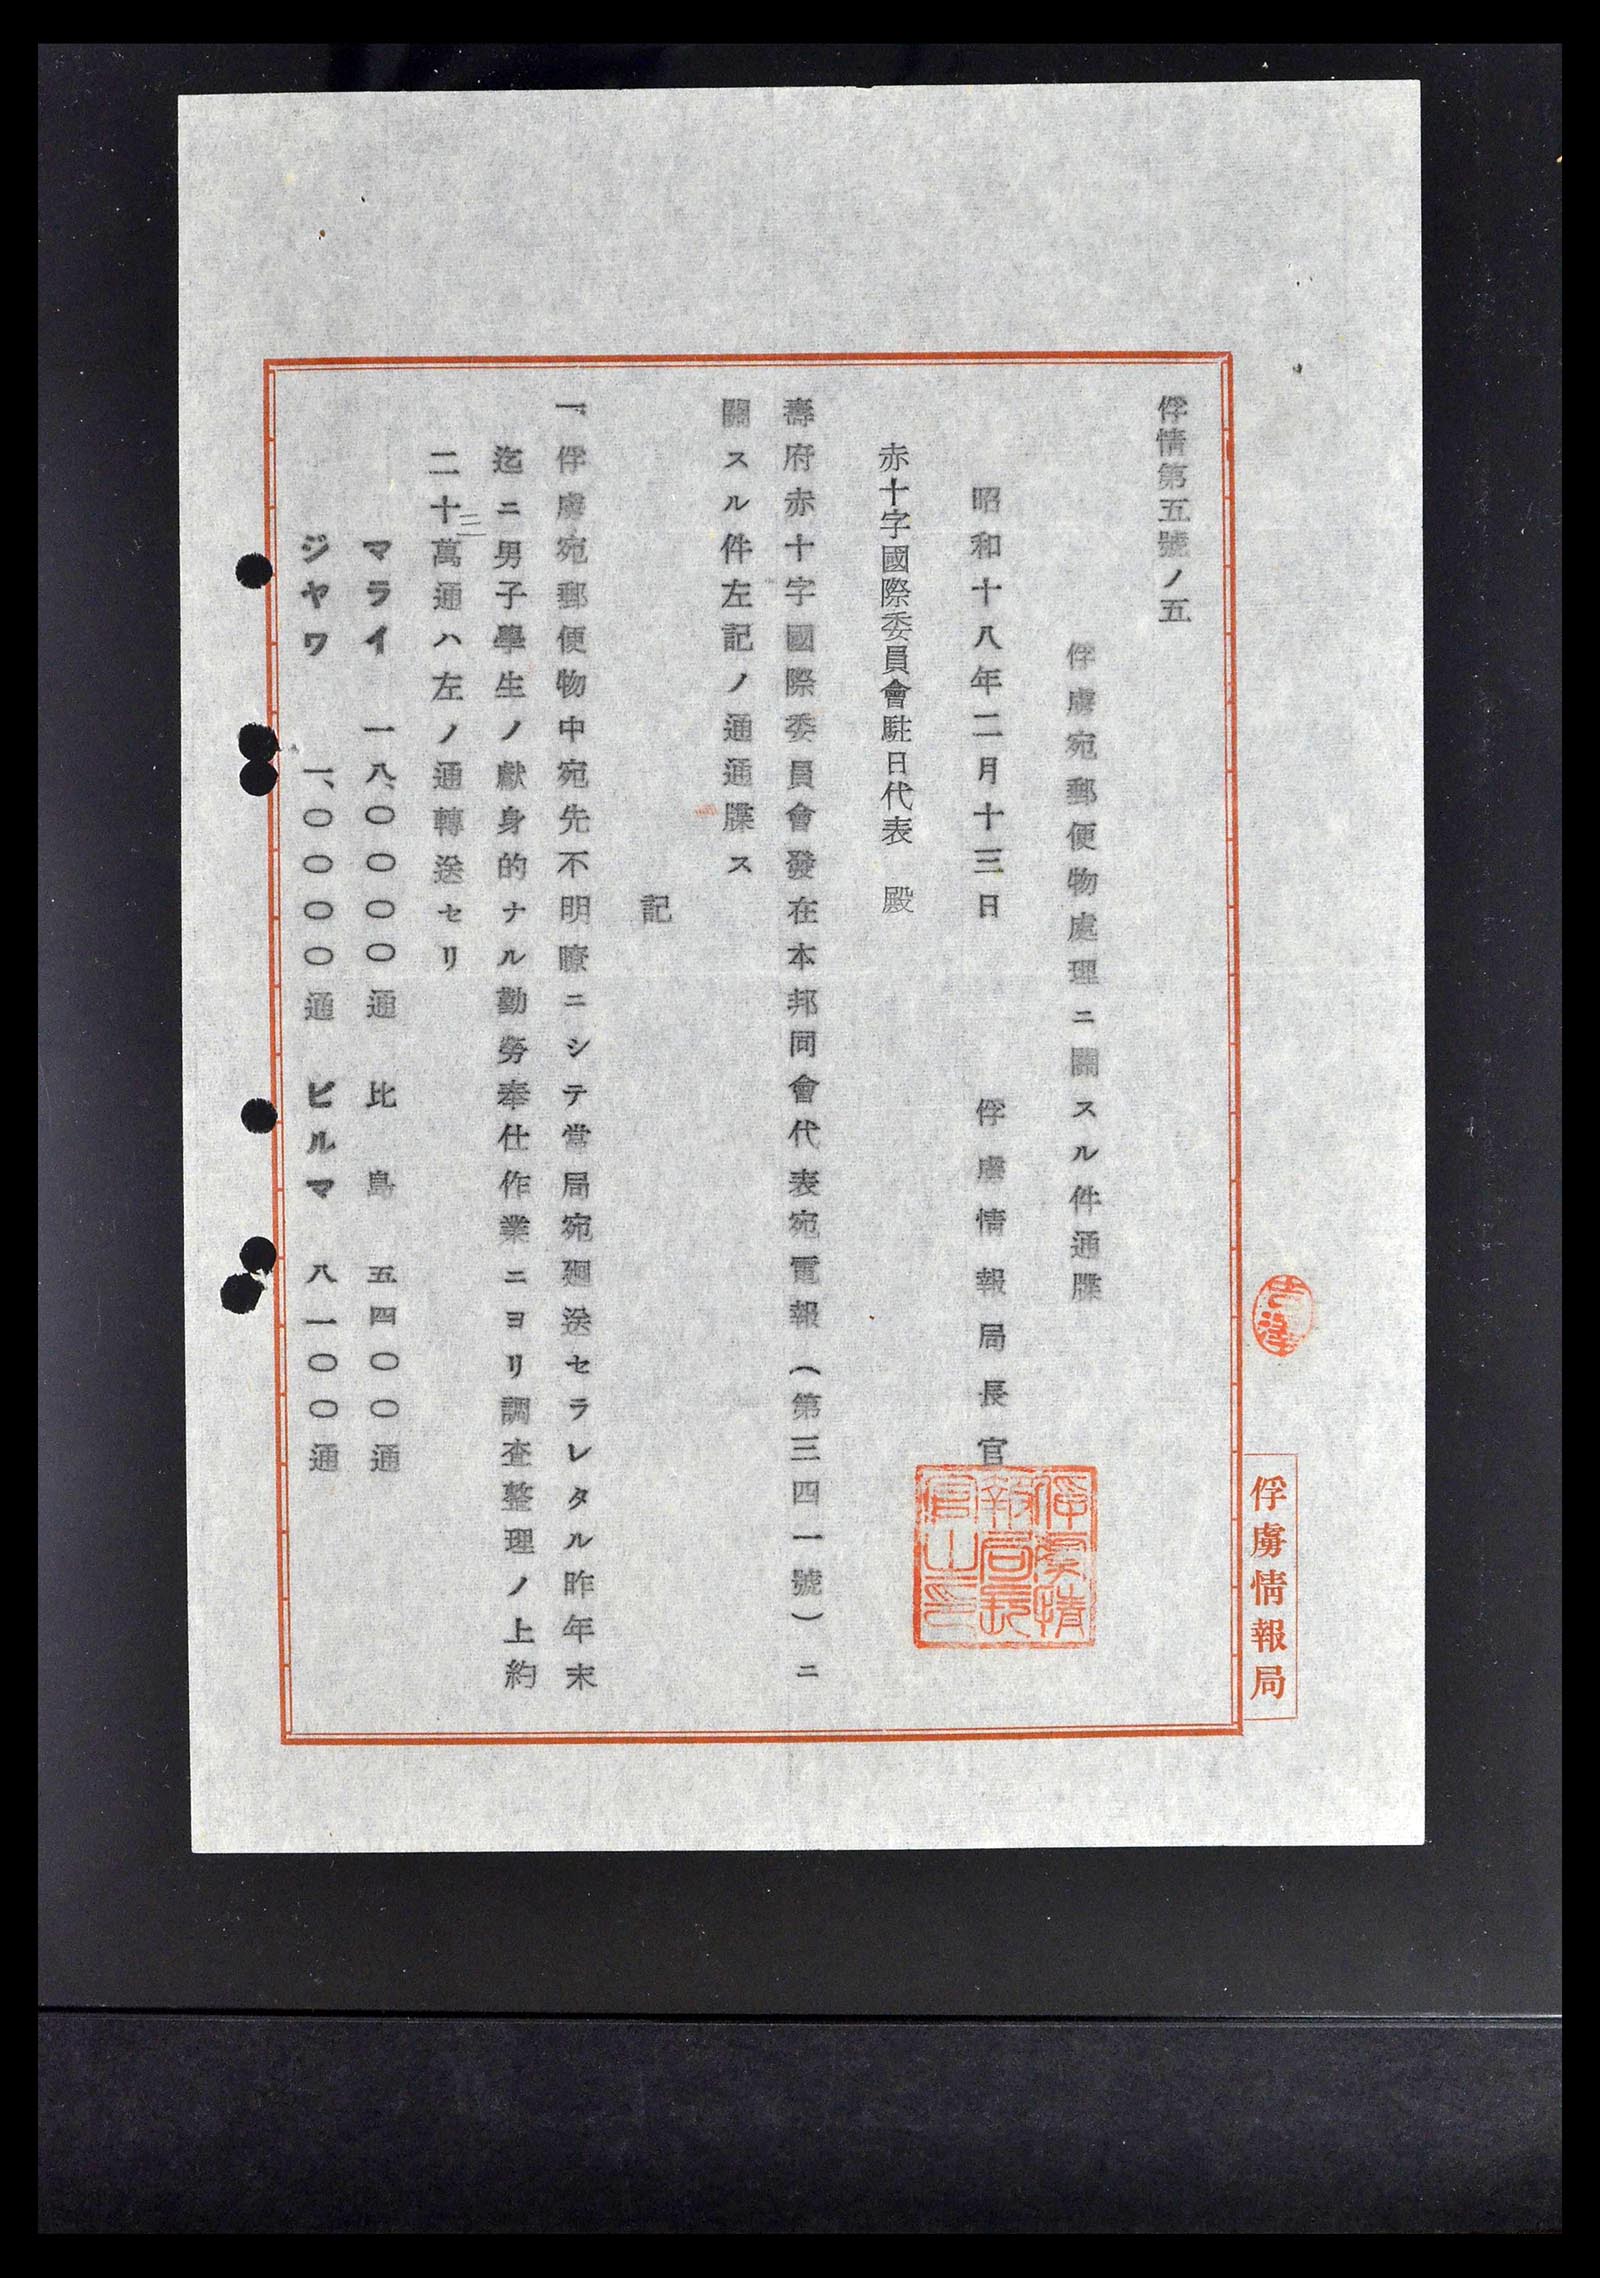 俘情第五號ノ五
俘虜宛郵便物處理ニ關スル件通牒
昭和十八年二月十三日
俘虜情報局長官
赤十字國際委員會駐日代表 殿
壽府赤十字國際委員會發在本邦同會代表宛電報(第三四一號)ニ
關スル件左記ノ通通牒ス
記
一、俘虜宛郵便物中宛先不明瞭ニシテ當局宛廻送セラレタル昨年末
迄ニ男子學生ノ獻身的ナル勤勞奉仕作業ニヨリ調査整理ノ上約
二十三萬通ハ左ノ通轉送セリ
マライ 一八、〇〇〇〇通 比島 五四〇〇通
ジヤワ 一、〇〇〇〇通 ビルマ 八一〇〇通
俘虜情報局長官之印
俘虜情報局